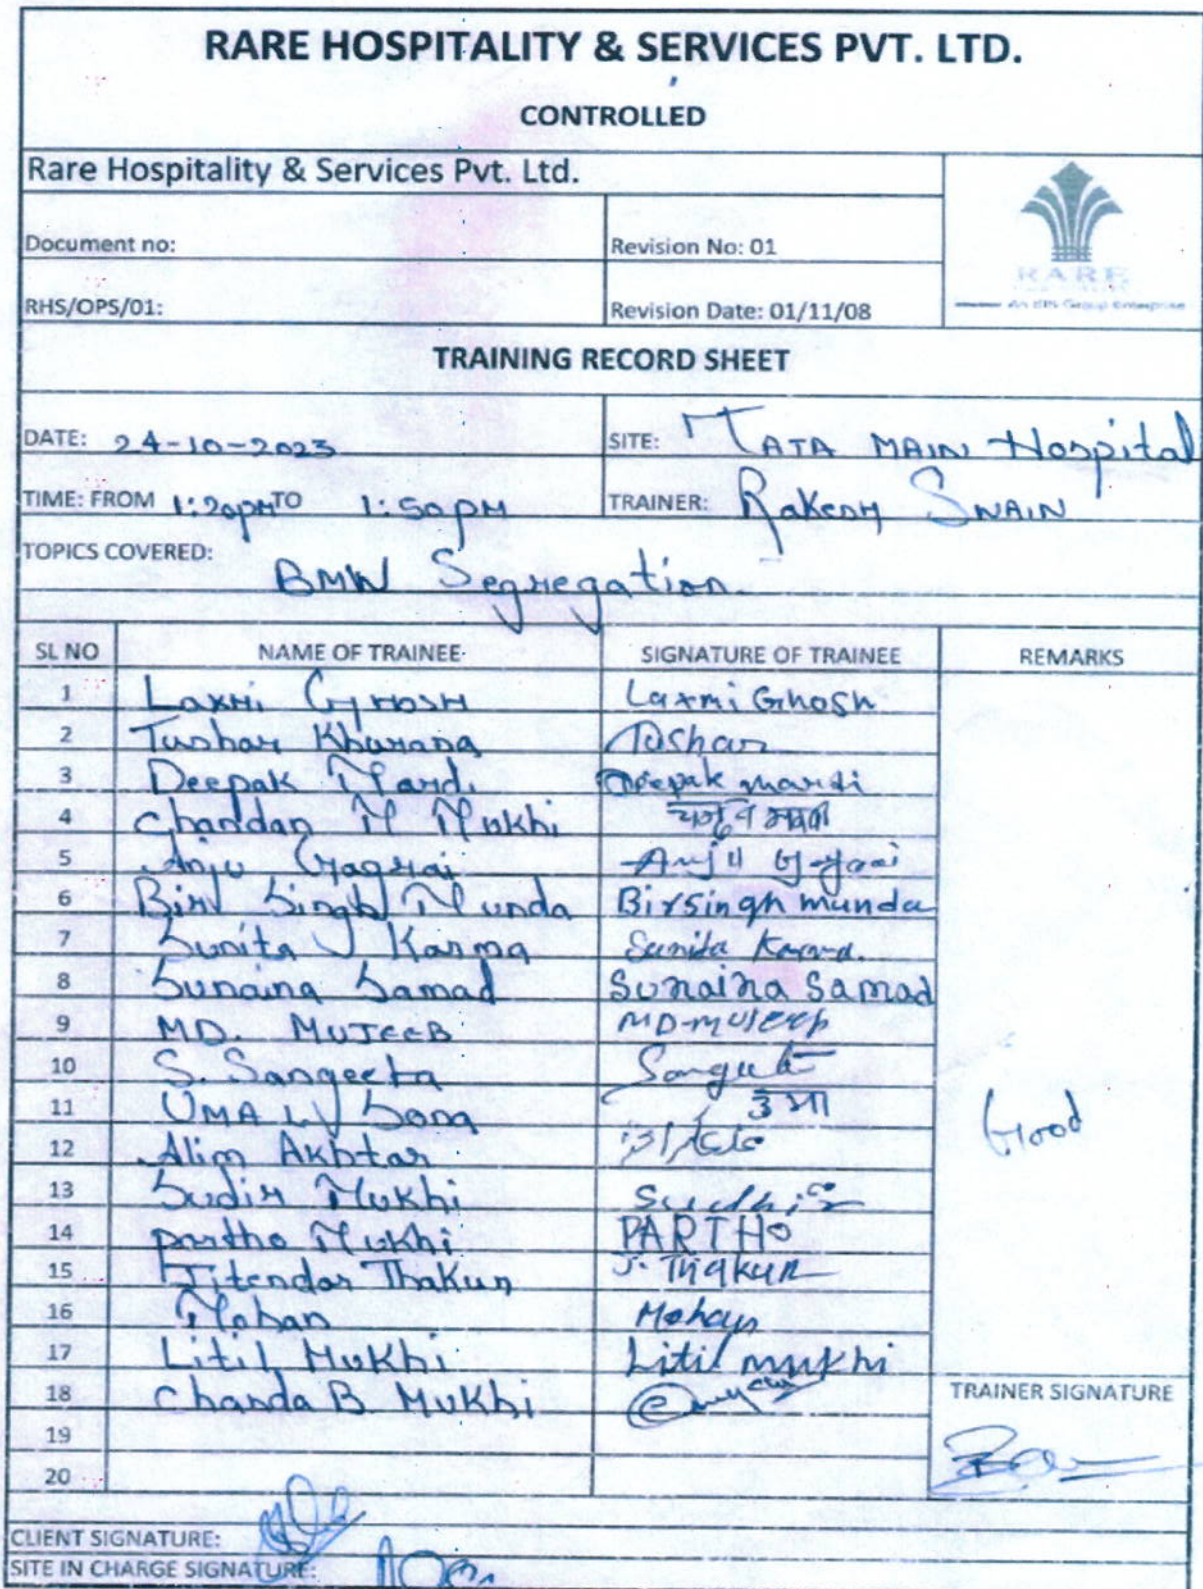 RARE HOSPITALITY & SERVICES PVT. LTD.
CONTROLLED
Rare Hospitality & Services Pvt. Ltd.
Document no:
Revision No: 01
RARE
RHS/OPS/01:
Revision Date: 01/11/08
TRAINING RECORD SHEET
DATE: 24-10-2023
SITE: TATA MAIN Hospital
TIME: FROM 1:20PM TO 1:50PM
TRAINER: Rakesh SWAIN
TOPICS COVERED:
BMW Segregation
SL NO NAME OF TRAINEE SIGNATURE OF TRAINEE REMARKS
1 Laxmi GHOSH Laxmi Ghosh
2 Tushar Khurana Tushar
3 Deepak Mardi Deepak mardi
4 Chandan M Mukhi
5 Anju Gagrai Anju
6 Bir Singh Munda Birsingh munda
7 Sunita Karma Sunita Karma.
8 Sunaina Samad Sunaina Samad
9 MD. MUJEEB MD-MUJEEB
10 S. Sangeeta
11 UMA उमा
Good
12 Alim Akhtar
13 Sudir Mukhi Sudhir
14 Partho Mukhi PARTHO
15 Jitendar Thakur J. Thakur
16 Mohan Mohan
17 Litil Mukhi Litil mukhi
18 Chanda B. Mukhi
TRAINER SIGNATURE
19
20
CLIENT SIGNATURE:
SITE IN CHARGE SIGNATURE: